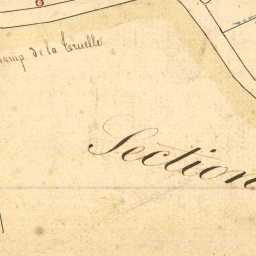 amp de la Truelle
Section